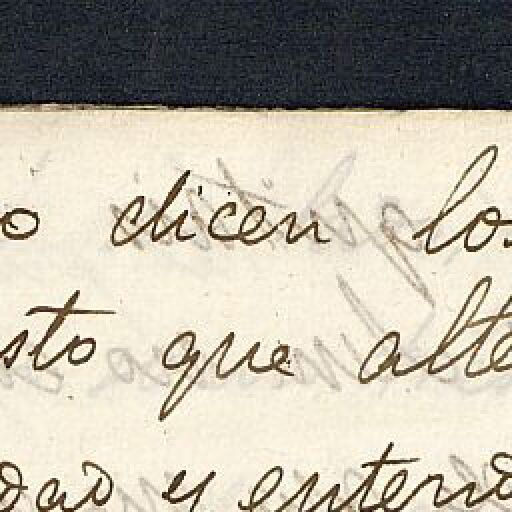 o dicen los
sto que alte
dad y entend